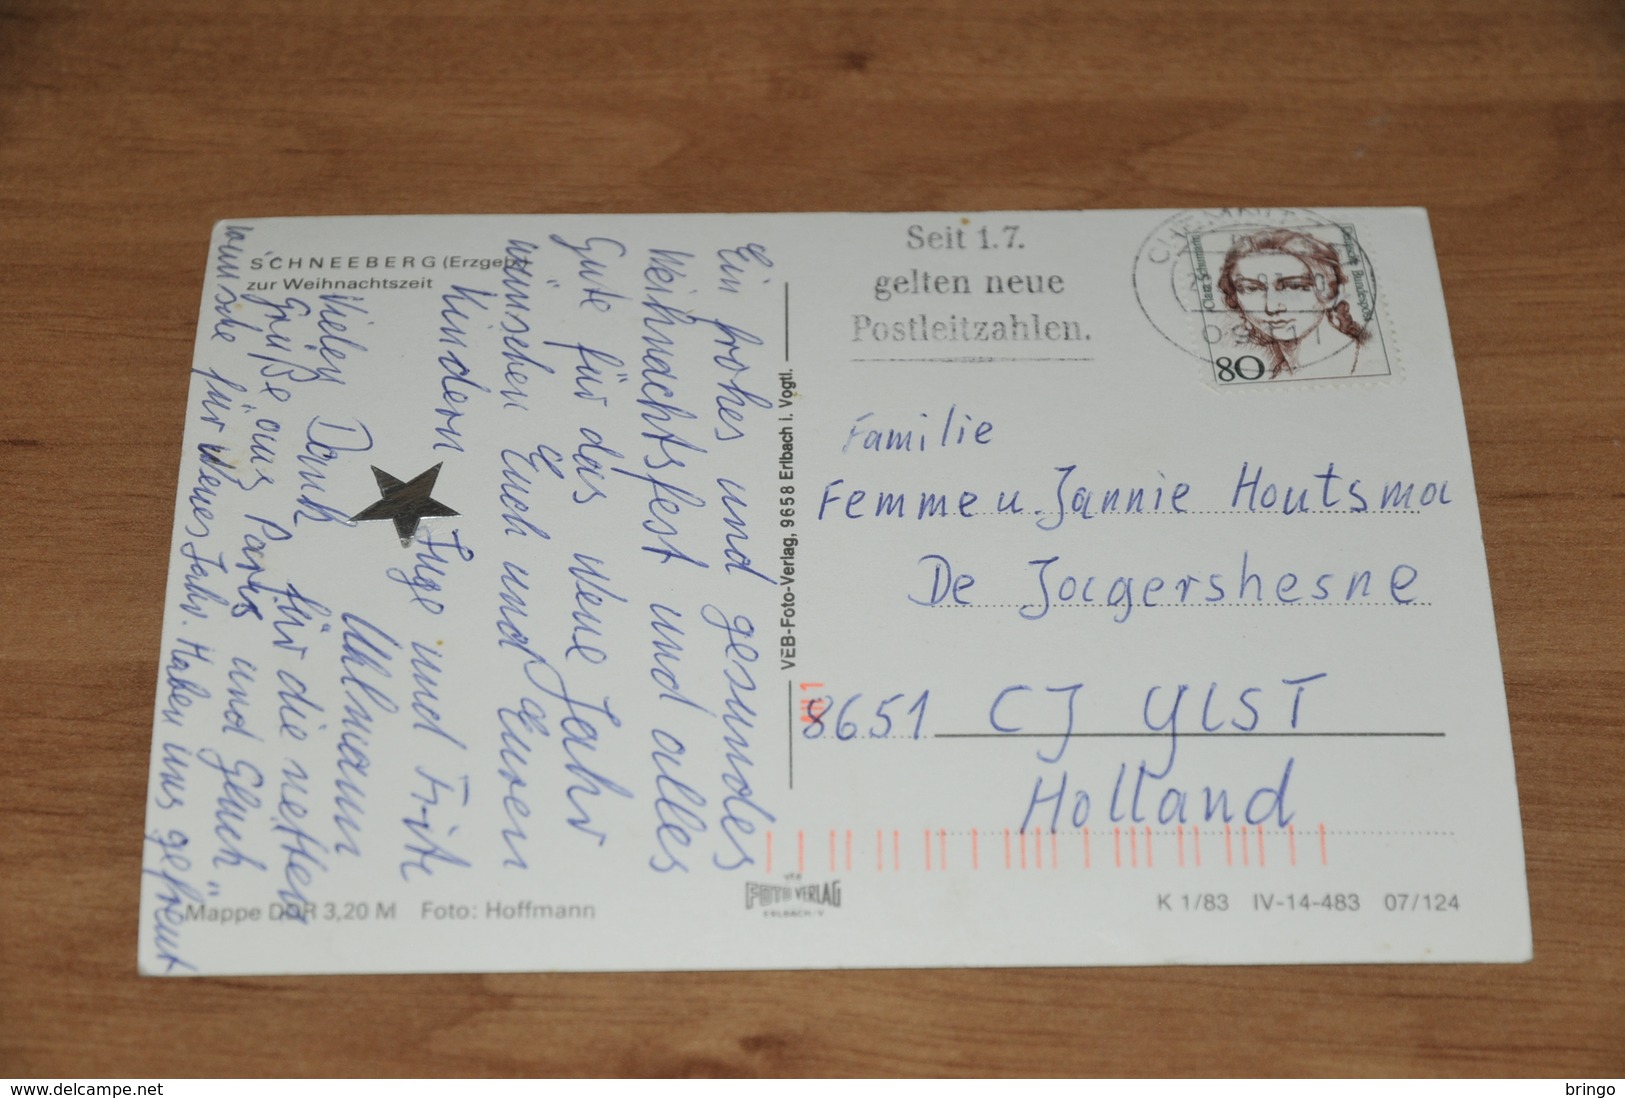 SCHNEEBERG (Erzgeb.)
zur Weihnachtszeit
Ein frohes und gesundes
Weihnachtsfest und alles
Gute für das neue Jahr
wünschen Euch und Euren
Kindern Inge und Fritz
Uhlmann
Vielen Dank für die netten
Grüße aus Paris und Glück-
wünsche für Neues Jahr. Haben uns gefreut
Mappe DDR 3,20 M Foto: Hoffmann
VEB-Foto-Verlag, 9658 Erlbach i. Vogtl.
VEB
FOTO VERLAG
ERLBACH/V
Seit 1.7.
gelten neue
Postleitzahlen.
CHEMNITZ
0911
Clara Schumann
Deutsche Bundespost
80
Familie
Femme u. Jannie Houtsma
De Jacgershesne
8651 CJ YLST
Holland
K 1/83 IV-14-483 07/124
http://www.delcampe.net
bringo